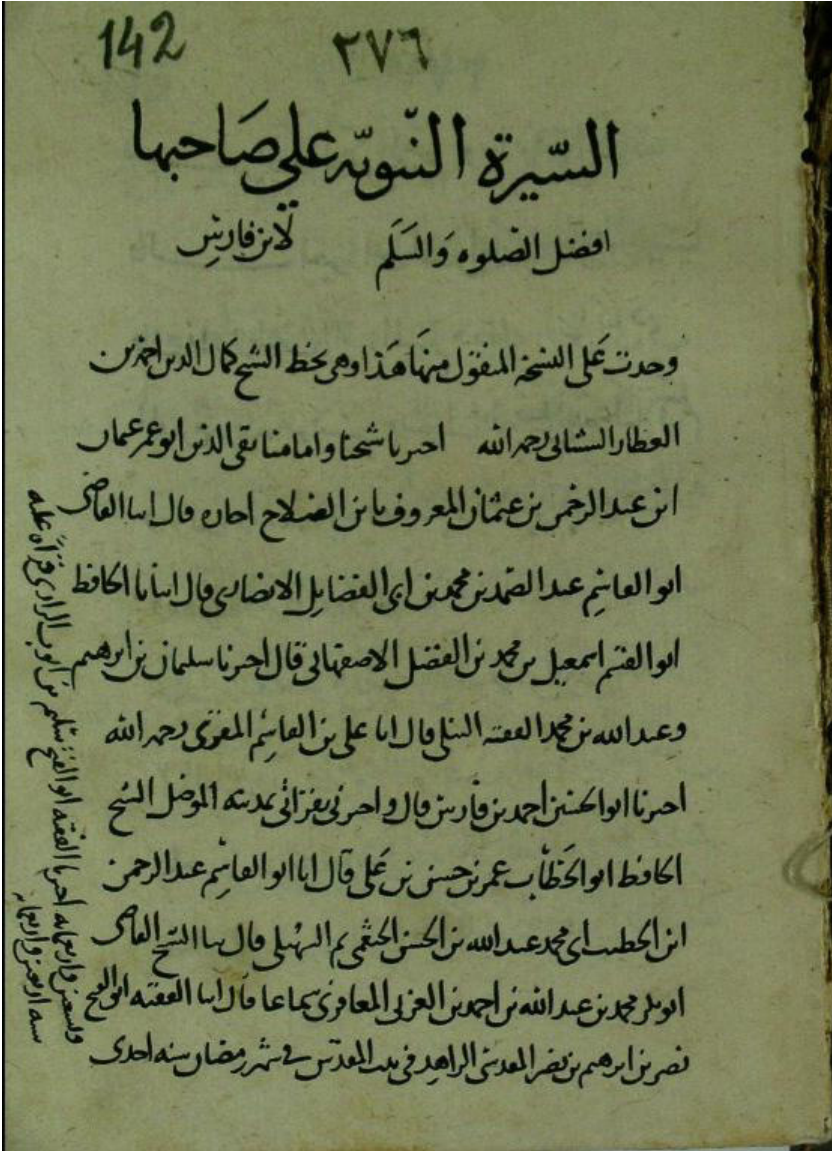 142
٣٧٦
السّيرة النّبويّه علي صَاحبها
افضل الصلوه وَالسَلَم لابن فارس
وجدت عَلى النسخة المنقول منهَا هَذا وهي بخط الشيخ كمال الدين احمد بن
العطار الشيباني رحمه الله اخبرنا شيخنا وامامنا تقي الدين ابو عمر عثمان
ابن عبد الرحمن بن عثمان المعروف بابن الصَلاح اجازه قال ابنا القاضي
ابو القاسِم عبد الصَمد بن محمد بن ابي الفضايل الانصاري قال انبانا الحافظ
ابو القسم اسمعيل بن محمد بن الفضل الاصفهاني قال اخبرنا سليمان بن ابرهيم
وعبد الله بن محمد الفقيه النيلي قال ابنا علي بن القاسِم المقري رحمه الله
اخبرنا ابو الحسين احمد بن فارس قال واخبرني بقراتي بمدينة الموصل الشيخ
الحافظ ابو الخَطاب عمر بن حسن بن عَلي قال ابنا ابو القاسِم عبد الرحمن
ابن الخطيب ابي محمد عبد الله بن الحسن الخثعمي ثم السُهيلي قال ثنا الشيخ القاضي
ابو بكر محمد بن عبد الله بن احمد بن العربي المعافري سماعا قال ابنا الفقيه ابو الفتح
نصر بن ابرهيم بن نصر المقدسي الزاهد في بيت المقدس في شهر رمضان سنه احدى
وسبعين واربعمايه اخبرنا الفقيه ابو الفتح سُليم بن ايوب الرازي قرآةً عليه
سنه اربعين واربعمايه